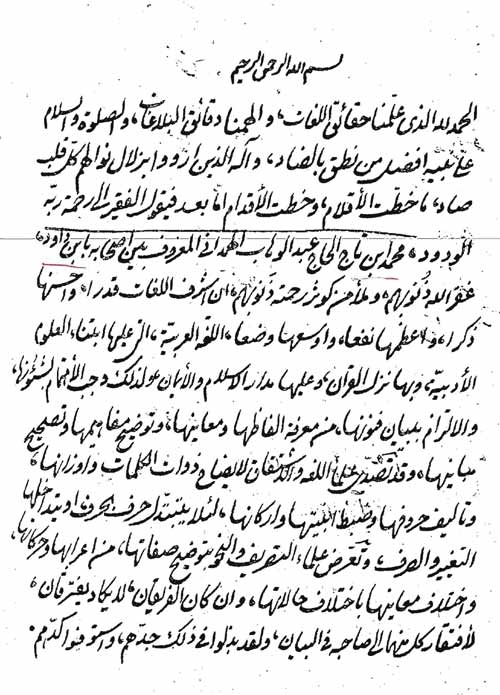 بسم الله الرحمن الرحیم
الحمد لله الذی علّمنا حقائق اللغات، و الهمنا دقائق البلاغات، و الصلوة و السلام
علی نبیه افضل من نطق بالضاد، و آله الذین اروو ابزلال نوالهم کل قلب
صاد، ما خطّت الأقلام، و خطت الأقدام اما بعد فیقول الفقیر الی رحمة ربّه
الودود، محمد ابن تاج الحاج عبد الوهاب الهمدانی المعروف بین اصحابه بابن داود،
غفر الله ذنوبهم، و ملأ من کوثر رحمته ذنوبهم، ان اشرف اللغات قدرا، و احسنها
ذکرا، و اعظمها نفعا، و اوسعها وضعا، اللغة العربیّة، التی علیها ابتناء العلوم
الأدبیة، و بها نزل القرآن، و علیها مدار الاسلام و الأیمان و لذلک وجب الأهتمام لشؤونها،
و الالتزام ببیان فنونها، من معرفة الفاظها و معانیها، و توضیح مفاهیمها و تصحیح
مبانیها، و قد تصدّی علماء اللغه و الاشتقاق لایضاح ذوات الکلمات و اوزانها،
و تالیف حروفها و ضبط ابنیتها و ارکانها، لئلا یتبدّل حرف بحرف، او یتداخلها
التغییر و الصرف، و تعرّض علماء التصریف و النحو بتوضیح صفاتها، من اعرابها و حرکاتها،
و اختلاف معانیها باختلاف حالاتها، و ان کان الفریقان، لا یکاد یفترقان،
لأفتقار کل منهما الی صاحبه فی البیان، و لقد بذلوا فی ذلک جدّهم، و استوفوا کدّهم.